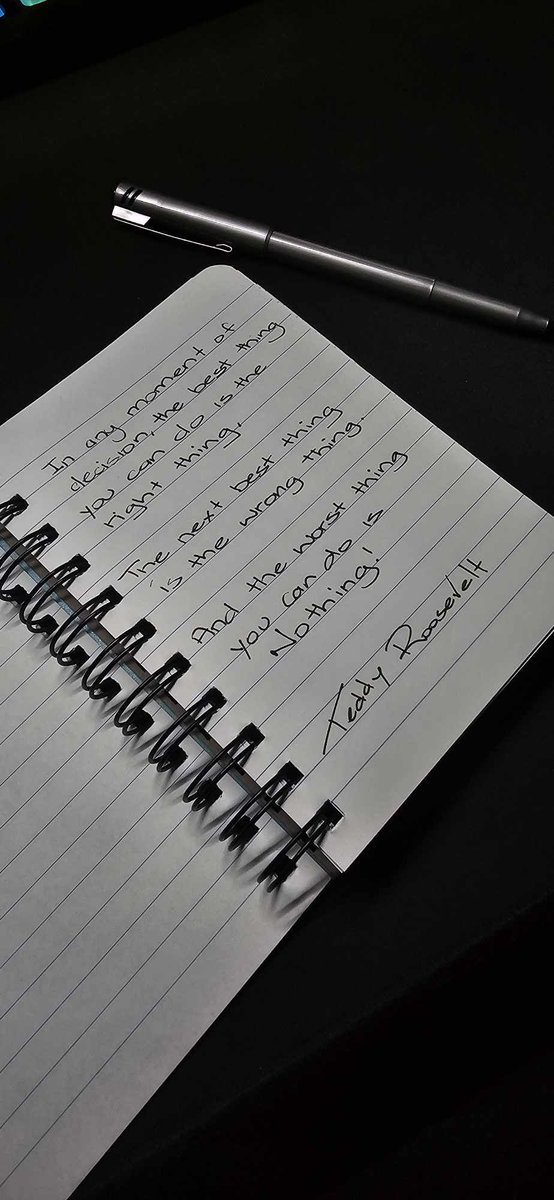 In any moment of
decision, the best thing
you can do is the
right thing.
The next best thing
is the wrong thing.
And the worst thing
you can do is
Nothing!
Teddy Roosevelt